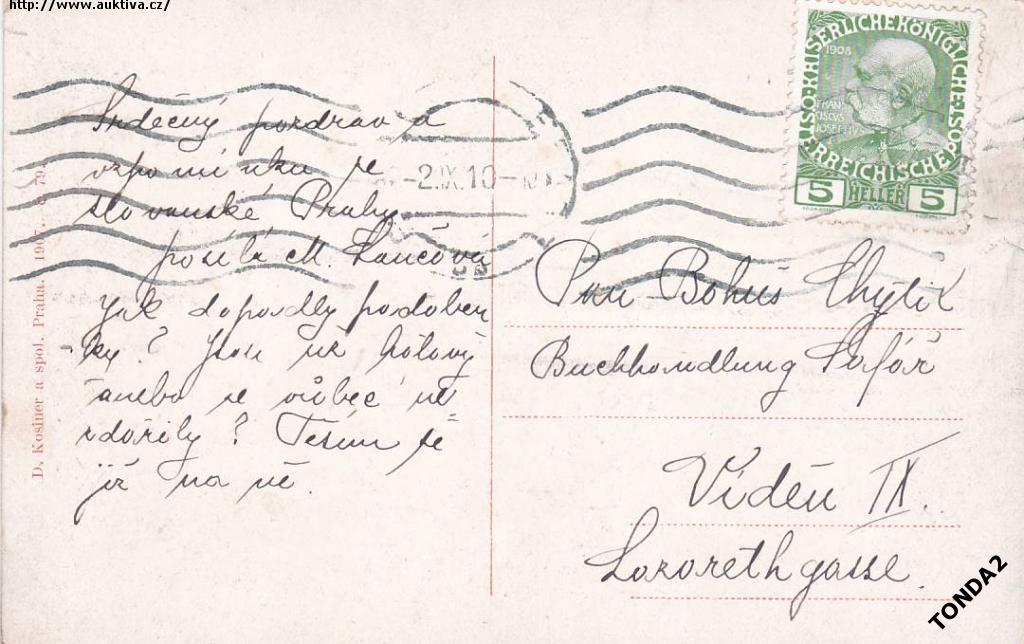 http://www.auktiva.cz/
KAISERLICHE KÖNIGLICHE
ÖSTERREICHISCHE POST
1908
FRAN
CISCVS
JOSEPHVS
5 HELLER 5
-2.IX.10-
Srdečný pozdrav a
vzpomínku ze
slovanské Prahy
posílá M.
Jak dopadly podoben
ky? Jsou už hotovy
anebo se vůbec ne
zdařily? Těším se
již na ně.
Pan Bohuš Chytil
Buchhandlung Šafář
Vídeň IX.
Lazarethgasse.
D. Kosiner a spol. Praha. 1907. 79
TONDA2